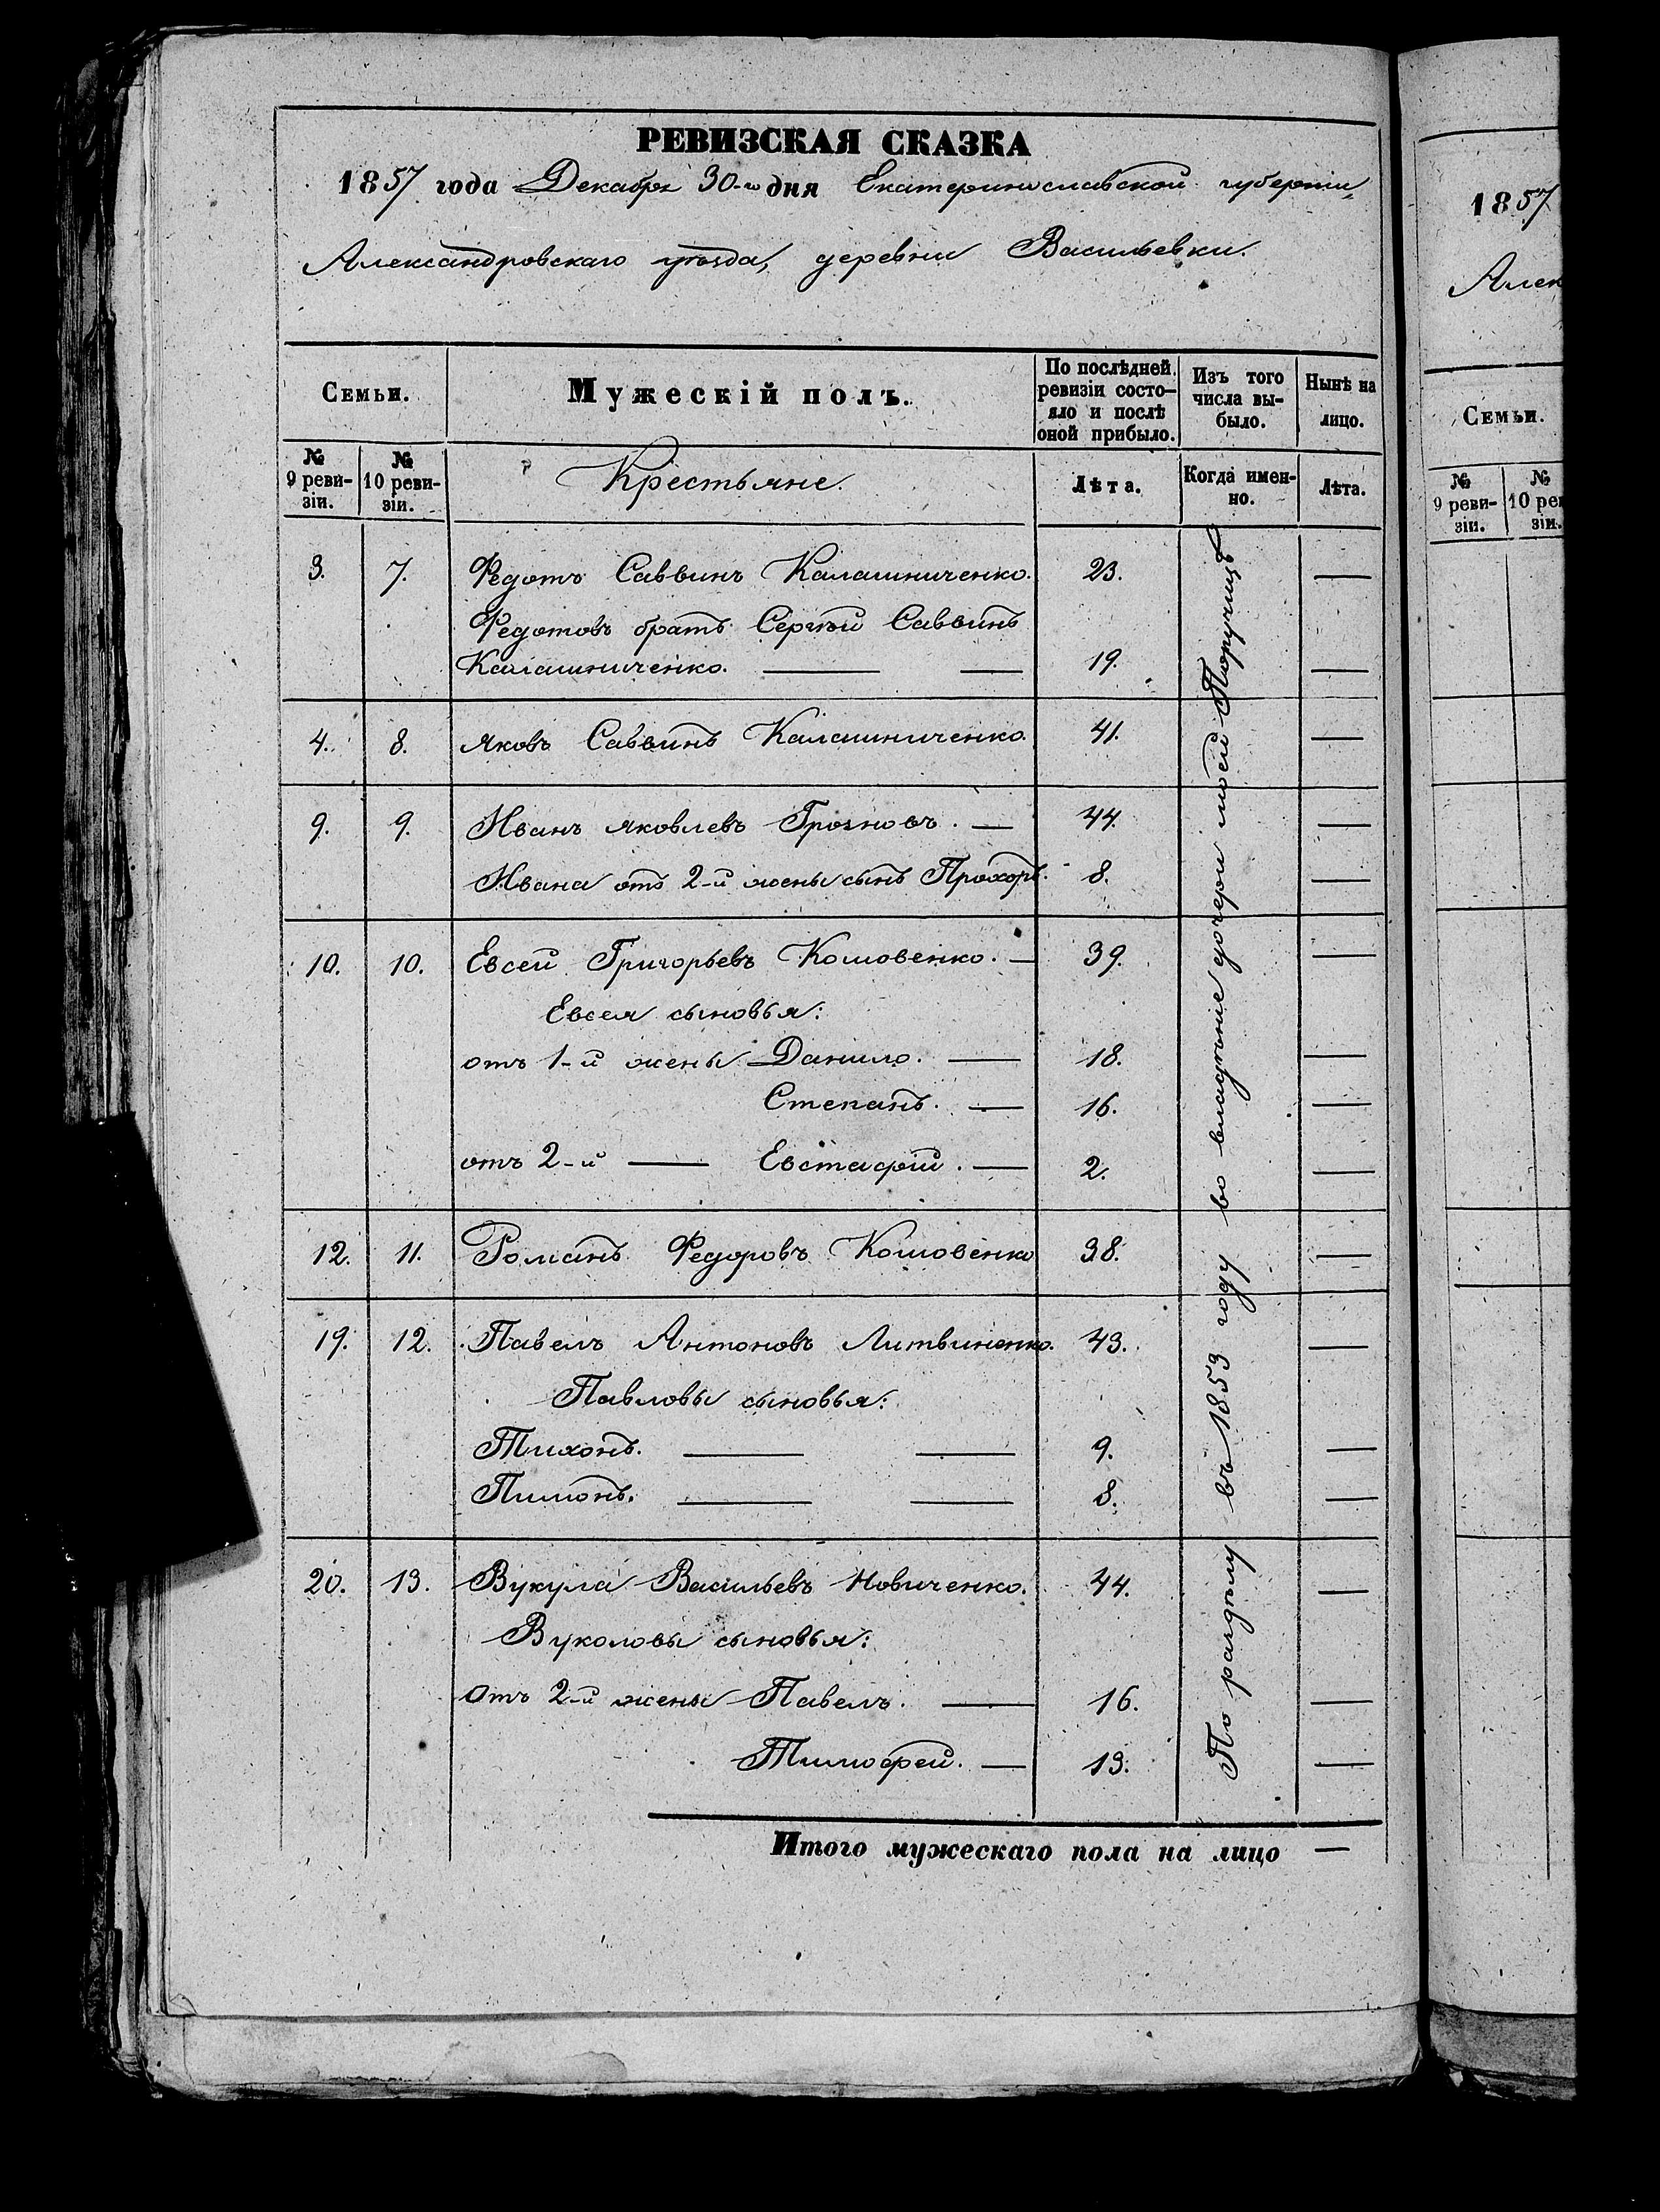 РЕВИЗСКАЯ СКАЗКА
1857 года Декабря 30-го дня Екатеринославской губерніи,
Александровскаго уѣзда, деревни Васильевки.
Семьи.
Мужескій полъ.
По послѣдней ревизіи состо-
яло и послѣ
оной прибыло.
Изъ того
числа вы-
было.
Нынѣ на
лицо.
№ 9 реви-
зіи.
№ 10 реви-
зіи.
Крестьяне.
Лѣта.
Когда имен-
но.
Лѣта.
3. 7. Федотъ Саввинъ Калашниченко. 23. —
Федотовъ братъ Сергѣй Саввинъ
Калашниченко. — — 19. —
4. 8. Яковъ Саввинъ Калашниченко 41. —
9. 9. Иванъ Яковлевъ Грозновъ. — 44. —
Ивана отъ 2-й жены сынъ Прохоръ. 8. —
10. 10. Евсей Григорьевъ Кошовенко. — 39. —
Евсея сыновья:
отъ 1-й жены Данило. — 18. —
Степанъ. — 16. —
отъ 2-й — Евстафій. — 2. —
12. 11. Романъ Федоровъ Кошовенко 38. —
19. 12. Павелъ Антоновъ Литвиненко. 43. —
Павловы сыновья:
Тихонъ. — — 9. —
Пимонъ. — — 8. —
20. 13. Вукула Васильевъ Новиченко. 44. —
Вуколовы сыновья:
Отъ 2-й жены Павелъ. — 16. —
Тимофей. — 13. —
По раздѣлу въ 1853 году во владѣніе дочери моей Поручицѣ
Итого мужескаго пола на лицо —
1857
Алек
Семьи.
№ 9 реви-
зіи.
№ 10 рев
зіи.